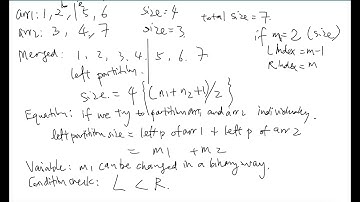 arr1: 1, 2, 5, 6 size = 4 total size = 7.
arr2: 3, 4, 7 size = 3
if m = 2 (size)
L index = m-1
R index = m
Merged: 1, 2, 3, 4, 5, 6, 7
left partition.
size = 4 { (n1 + n2 + 1)/2 }
Equation: if we try to partition arr1 and arr2 individually.
left partition size = left p of arr1 + left p of arr2
= m1 + m2
Variable: m1 can be changed in a binary way.
Condition check: L < R.